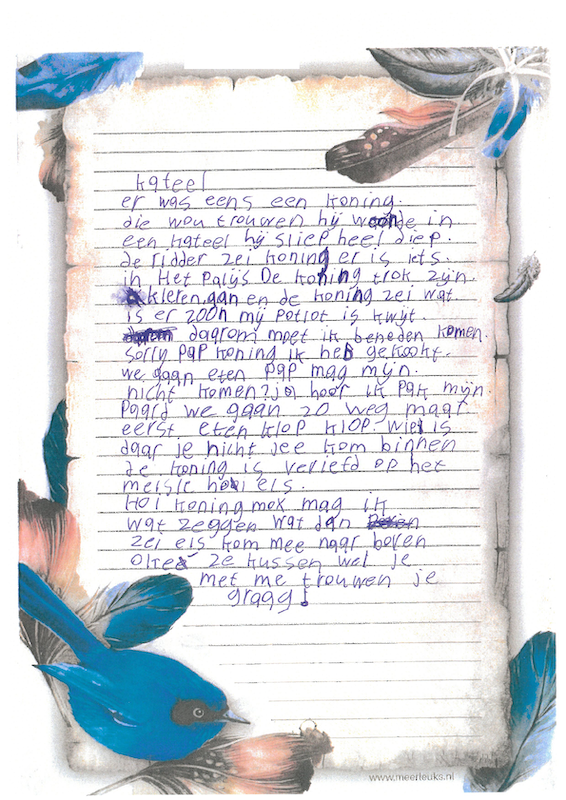 kateel
er was eens een koning.
die wou trouwen hij woonde in
een kateel hij sliep heel diep.
de ridder zei koning er is iets.
in Het Palijs De koning trok zijn
kleren aan en de koning zei wat
is er zoon mij potlot is kwijt.
daarom moet ik beneden komen.
sorry pap koning ik heb gekookt.
we gaan eten pap mag mijn.
nicht komen? ja hoor ik pak mijn.
Paard we gaan zo weg maar
eerst eten klop klop wie is
daar je nicht jee kom binnen
de koning is verliefd op het
meisje hoi els.
Hoi koning max mag ik
wat zeggen wat dan
zei els kom mee naar boven
oke ze kussen wel je
met me trouwen je
graag!
www.meerleuks.nl